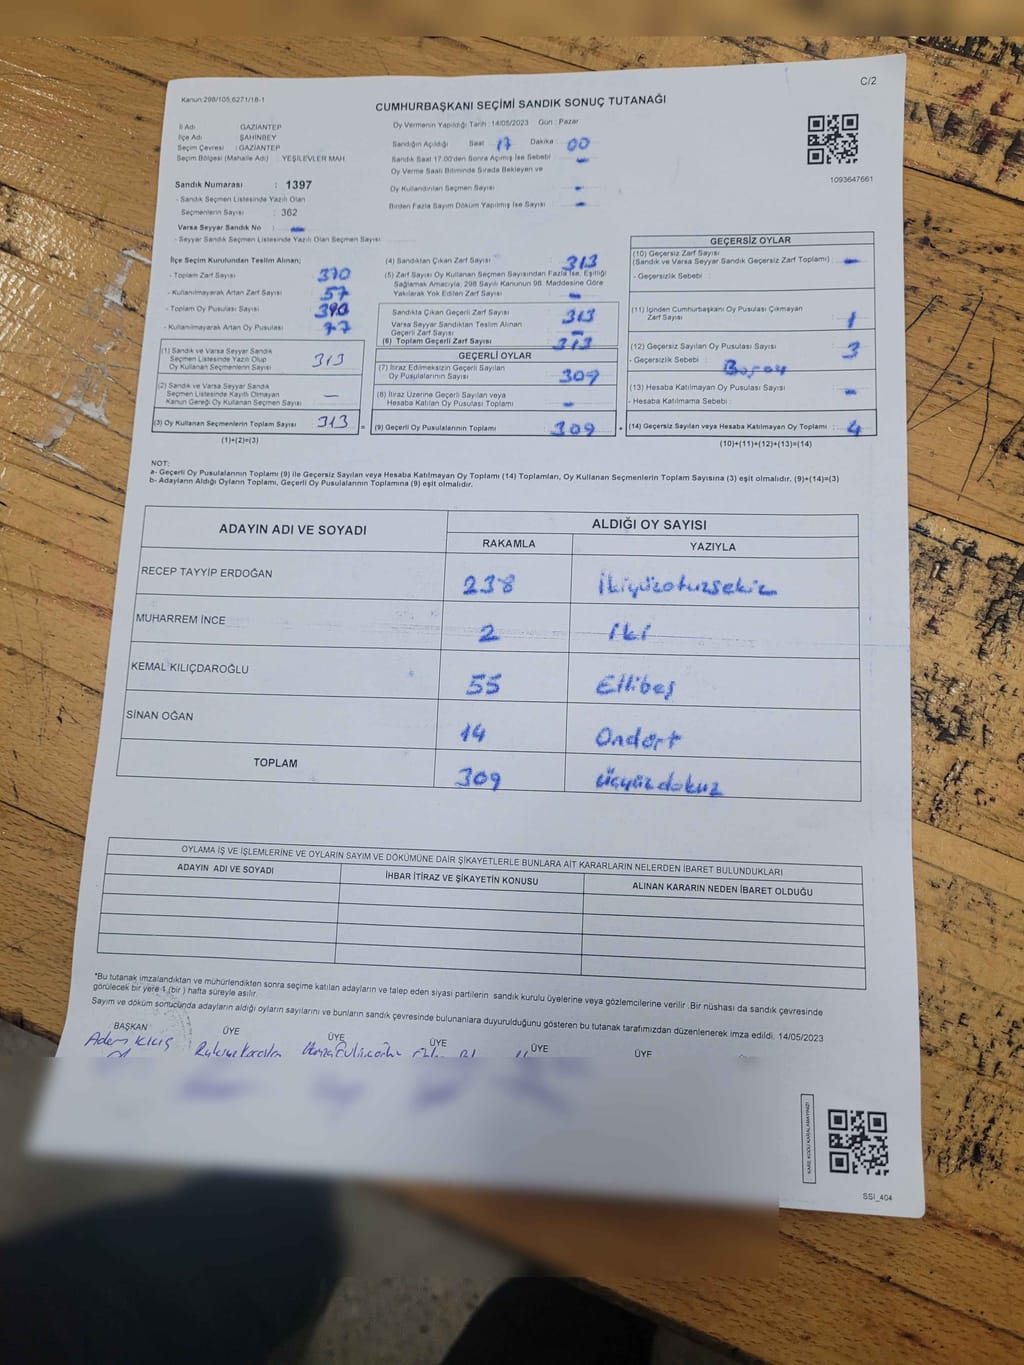 C/2
Kanun:298/105,6271/18-1
CUMHURBAŞKANI SEÇİMİ SANDIK SONUÇ TUTANAĞI
İl Adı GAZİANTEP
İlçe Adı ŞAHİNBEY
Seçim Çevresi : GAZİANTEP
Seçim Bölgesi (Mahalle Adı) : YEŞİLEVLER MAH.
Sandık Numarası : 1397
- Sandık Seçmen Listesinde Yazılı Olan
Seçmenlerin Sayısı : 362
Varsa Seyyar Sandık No : -
- Seyyar Sandık Seçmen Listesinde Yazılı Olan Seçmen Sayısı
Oy Vermenin Yapıldığı Tarih : 14/05/2023 Gün : Pazar
Sandığın Açıldığı Saat : 17 Dakika : 00
Sandık Saat 17.00'den Sonra Açılmış İse Sebebi : -
Oy Verme Saati Bitiminde Sırada Bekleyen ve
Oy Kullandırılan Seçmen Sayısı -
Birden Fazla Sayım Döküm Yapılmış İse Sayısı -
1093647661
İlçe Seçim Kurulundan Teslim Alınan;
- Toplam Zarf Sayısı 370
- Kullanılmayarak Artan Zarf Sayısı 57
- Toplam Oy Pusulası Sayısı 390
- Kullanılmayarak Artan Oy Pusulası 77
(1) Sandık ve Varsa Seyyar Sandık
Seçmen Listesinde Yazılı Olup
Oy Kullanan Seçmenlerin Sayısı 313
(2) Sandık ve Varsa Seyyar Sandık
Seçmen Listesinde Kayıtlı Olmayan
Kanun Gereği Oy Kullanan Seçmen Sayısı -
(3) Oy Kullanan Seçmenlerin Toplam Sayısı : 313
(1)+(2)=(3)
(4) Sandıktan Çıkan Zarf Sayısı 313
(5) Zarf Sayısı Oy Kullanan Seçmen Sayısından Fazla İse, Eşitliği
Sağlamak Amacıyla, 298 Sayılı Kanunun 98. Maddesine Göre
Yakılarak Yok Edilen Zarf Sayısı -
Sandıkta Çıkan Geçerli Zarf Sayısı : 313
Varsa Seyyar Sandıktan Teslim Alınan
Geçerli Zarf Sayısı : -
(6) Toplam Geçerli Zarf Sayısı : 313
GEÇERLİ OYLAR
(7) İtiraz Edilmeksizin Geçerli Sayılan
Oy Pusulalarının Sayısı : 309
(8) İtiraz Üzerine Geçerli Sayılan veya
Hesaba Katılan Oy Pusulası Toplamı : -
= (9) Geçerli Oy Pusulalarının Toplamı : 309 +
GEÇERSİZ OYLAR
(10) Geçersiz Zarf Sayısı
(Sandık ve Varsa Seyyar Sandık Geçersiz Zarf Toplamı) : -
- Geçersizlik Sebebi :
(11) İçinden Cumhurbaşkanı Oy Pusulası Çıkmayan
Zarf Sayısı : 1
(12) Geçersiz Sayılan Oy Pusulası Sayısı : 3
- Geçersizlik Sebebi :
(13) Hesaba Katılmayan Oy Pusulası Sayısı : -
- Hesaba Katılmama Sebebi :
(14) Geçersiz Sayılan veya Hesaba Katılmayan Oy Toplamı : 4
(10)+(11)+(12)+(13)=(14)
NOT:
a- Geçerli Oy Pusulalarının Toplamı (9) ile Geçersiz Sayılan veya Hesaba Katılmayan Oy Toplamı (14) Toplamları, Oy Kullanan Seçmenlerin Toplam Sayısına (3) eşit olmalıdır. (9)+(14)=(3)
b- Adayların Aldığı Oyların Toplamı, Geçerli Oy Pusulalarının Toplamına (9) eşit olmalıdır.
ADAYIN ADI VE SOYADI ALDIĞI OY SAYISI
RAKAMLA YAZIYLA
RECEP TAYYİP ERDOĞAN 238 İkiyüzotuzsekiz
MUHARREM İNCE 2 iki
KEMAL KILIÇDAROĞLU 55 Ellibeş
SİNAN OĞAN 14 Ondört
TOPLAM 309 üçyüzdokuz
OYLAMA İŞ VE İŞLEMLERİNE VE OYLARIN SAYIM VE DÖKÜMÜNE DAİR ŞİKAYETLERLE BUNLARA AİT KARARLARIN NELERDEN İBARET BULUNDUKLARI
ADAYIN ADI VE SOYADI İHBAR İTİRAZ VE ŞİKAYETİN KONUSU ALINAN KARARIN NEDEN İBARET OLDUĞU
*Bu tutanak imzalandıktan ve mühürlendikten sonra seçime katılan adayların ve talep eden siyasi partilerin sandık kurulu üyelerine veya gözlemcilerine verilir. Bir nüshası da sandık çevresinde
görülecek bir yere 1 (bir) hafta süreyle asılır.
Sayım ve döküm sonucunda adayların aldığı oyların sayılarını ve bunların sandık çevresinde bulunanlara duyurulduğunu gösteren bu tutanak tarafımızdan düzenlenerek imza edildi. 14/05/2023
BAŞKAN ÜYE ÜYE ÜYE ÜYE ÜYE
Adem KILIÇ
KARE KODU KARALAMAYINIZ!
SSI_404